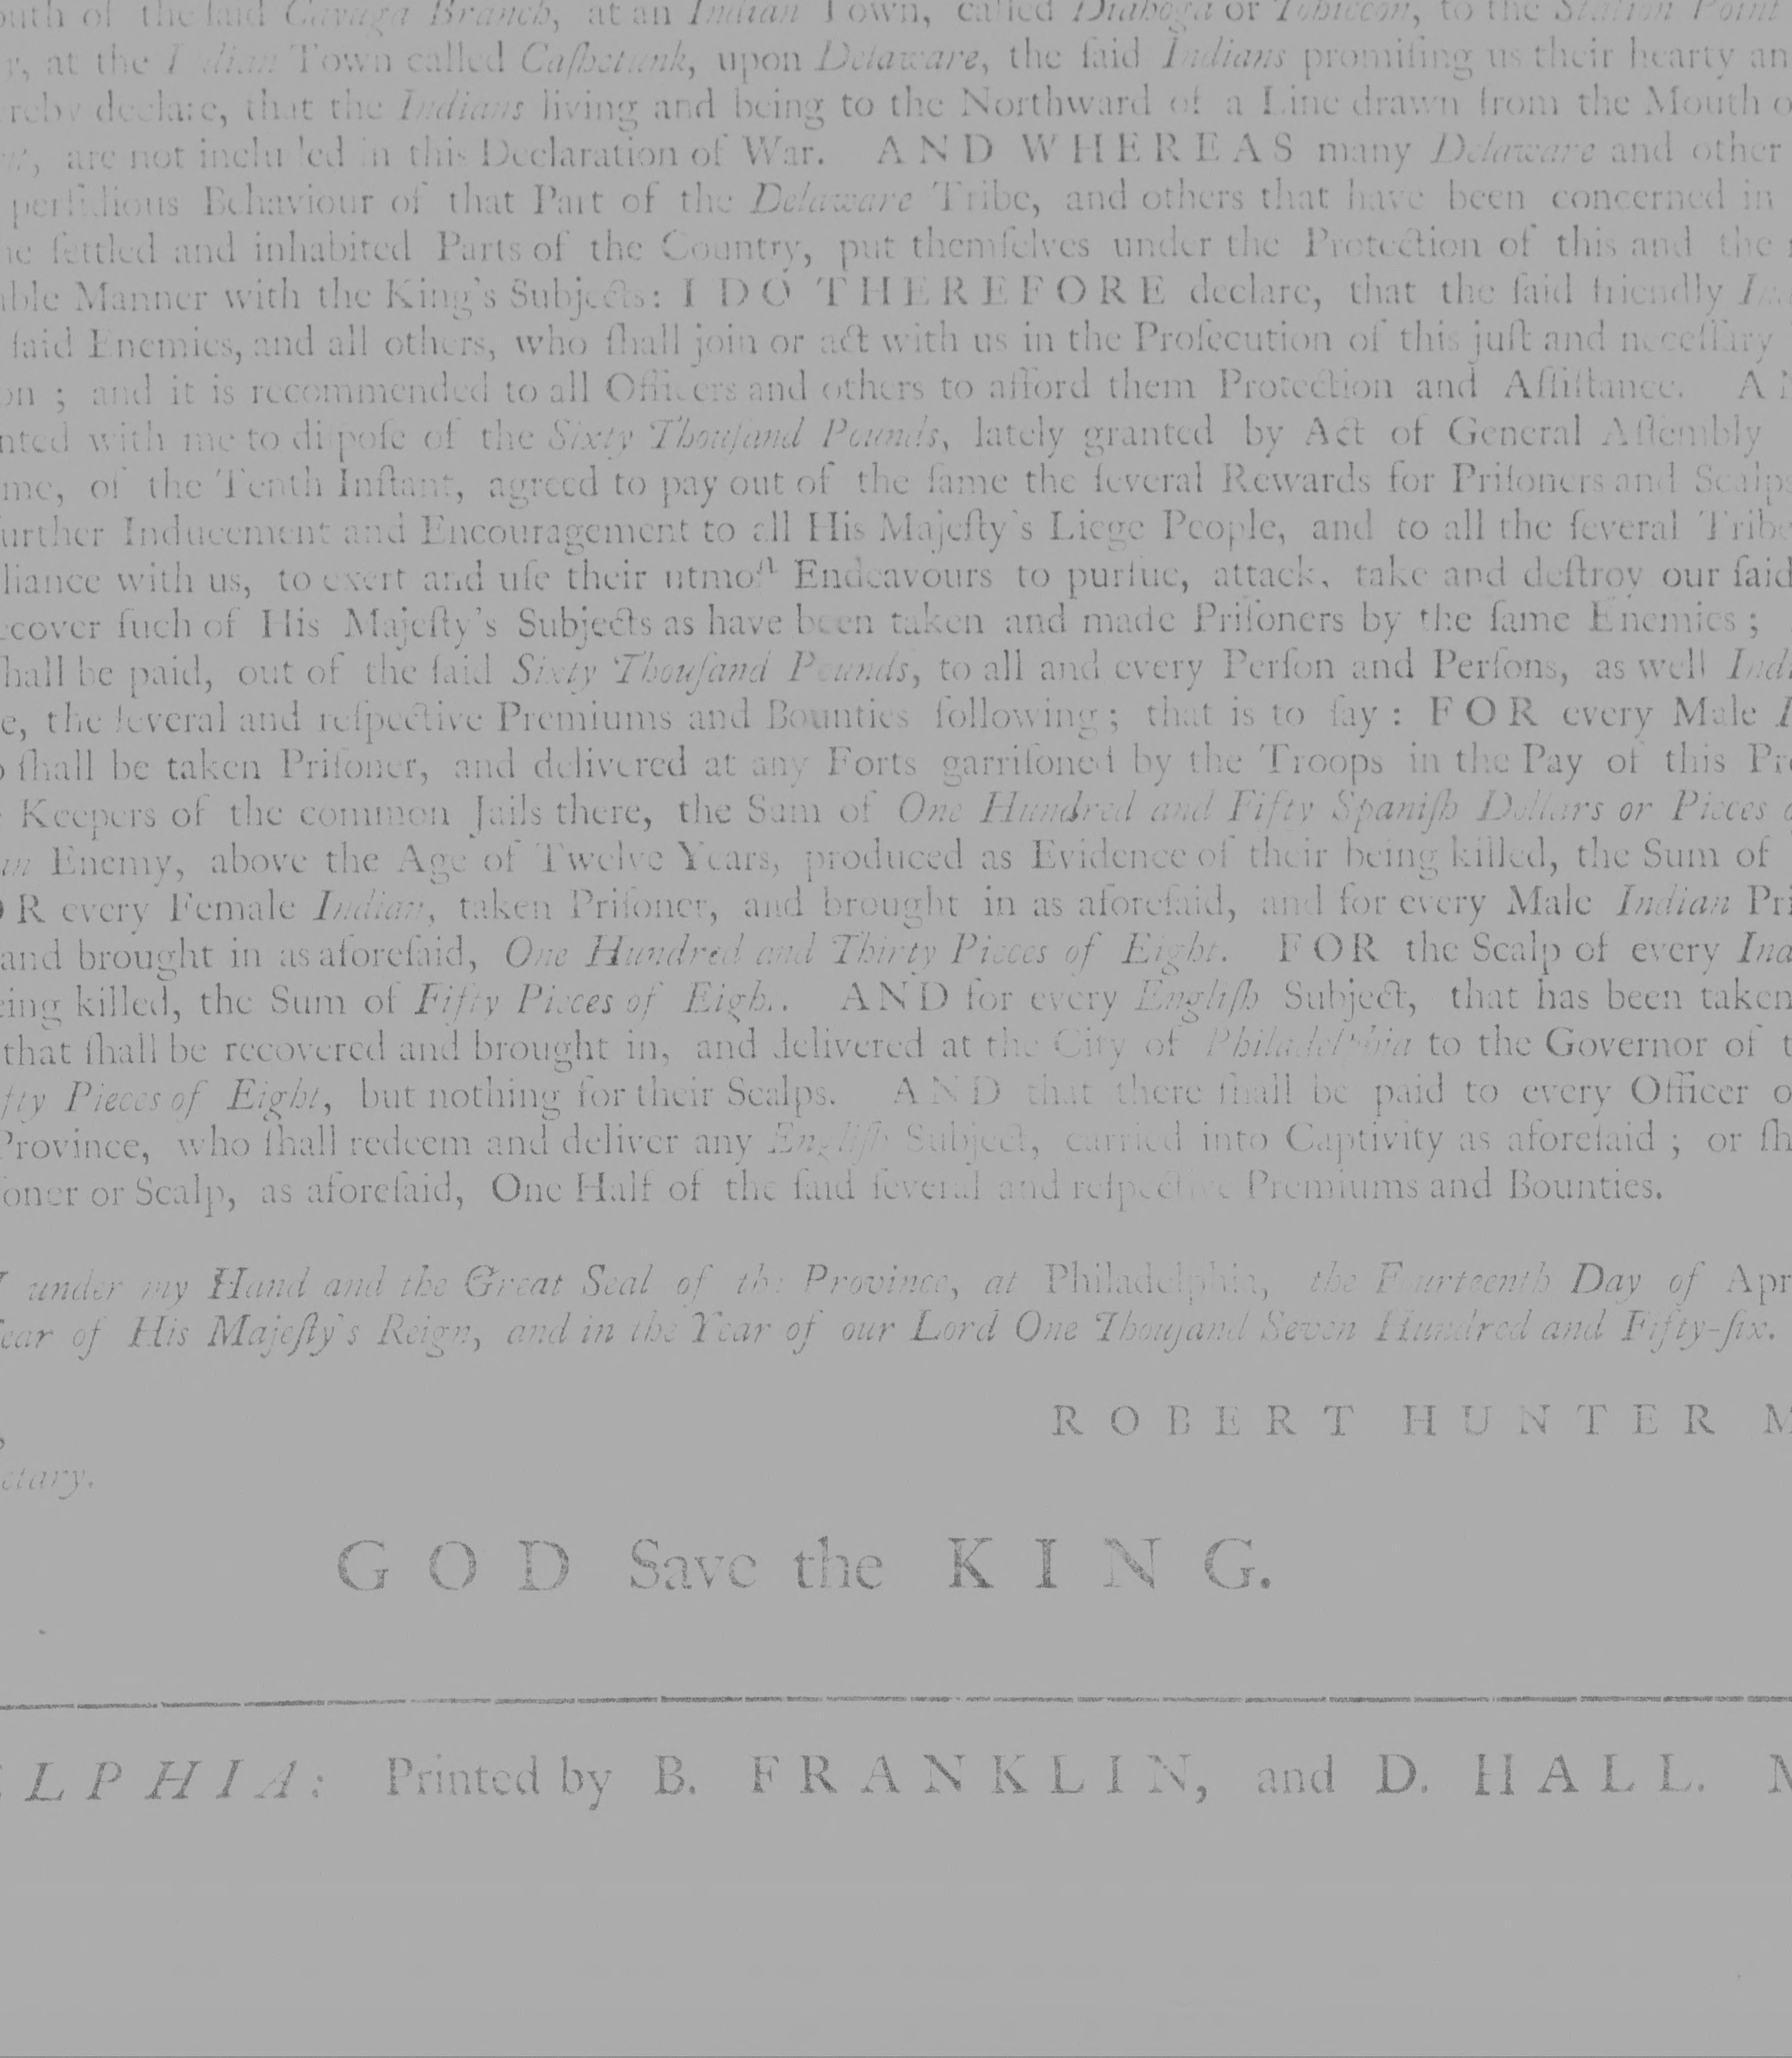 outh of the ſaid Cayuga Branch, at an Indian Town, called Diahoga or Tohiccon, to the Station Point
r, at the Indian Town called Caſhetunk, upon Delaware, the ſaid Indians promiſing us their hearty an
reby declare, that the Indians living and being to the Northward of a Line drawn from the Mouth o
are not included in this Declaration of War. AND WHEREAS many Delaware and other
perfidious Behaviour of that Part of the Delaware Tribe, and others that have been concerned in
he ſettled and inhabited Parts of the Country, put themſelves under the Protection of this and the
able Manner with the King's Subjects: I DO THEREFORE declare, that the ſaid friendly In
ſaid Enemies, and all others, who ſhall join or act with us in the Proſecution of this juſt and neceſſary
on ; and it is recommended to all Officers and others to afford them Protection and Aſſiſtance. A
nted with me to diſpoſe of the Sixty Thouſand Pounds, lately granted by Act of General Aſſembly
me, of the Tenth Inſtant, agreed to pay out of the ſame the ſeveral Rewards for Priſoners and Scalps
urther Inducement and Encouragement to all His Majeſty's Liege People, and to all the ſeveral Tribe
liance with us, to exert and uſe their utmoſt Endeavours to purſue, attack, take and deſtroy our ſaid
ecover ſuch of His Majeſty's Subjects as have been taken and made Priſoners by the ſame Enemies ;
ſhall be paid, out of the ſaid Sixty Thouſand Pounds, to all and every Perſon and Perſons, as well Indi
e, the ſeveral and reſpective Premiums and Bounties following ; that is to ſay : FOR every Male I
o ſhall be taken Priſoner, and delivered at any Forts garriſoned by the Troops in the Pay of this Pro
Keepers of the common Jails there, the Sum of One Hundred and Fifty Spaniſh Dollars or Pieces o
an Enemy, above the Age of Twelve Years, produced as Evidence of their being killed, the Sum of
OR every Female Indian, taken Priſoner, and brought in as aforeſaid, and for every Male Indian Pri
and brought in as aforeſaid, One Hundred and Thirty Pieces of Eight. FOR the Scalp of every Ind
eing killed, the Sum of Fifty Pieces of Eight. AND for every Engliſh Subject, that has been taken
that ſhall be recovered and brought in, and delivered at the City of Philadelphia to the Governor of t
fty Pieces of Eight, but nothing for their Scalps. AND that there ſhall be paid to every Officer o
Province, who ſhall redeem and deliver any Engliſh Subject, carried into Captivity as aforeſaid ; or ſh
ſoner or Scalp, as aforeſaid, One Half of the ſaid ſeveral and reſpective Premiums and Bounties.
under my Hand and the Great Seal of the Province, at Philadelphia, the Fourteenth Day of Apr
Year of His Majeſty's Reign, and in the Year of our Lord One Thouſand Seven Hundred and Fifty-ſix.
ROBERT HUNTER M
,
etary.
GOD Save the KING.
ELPHIA: Printed by B. FRANKLIN, and D. HALL. M